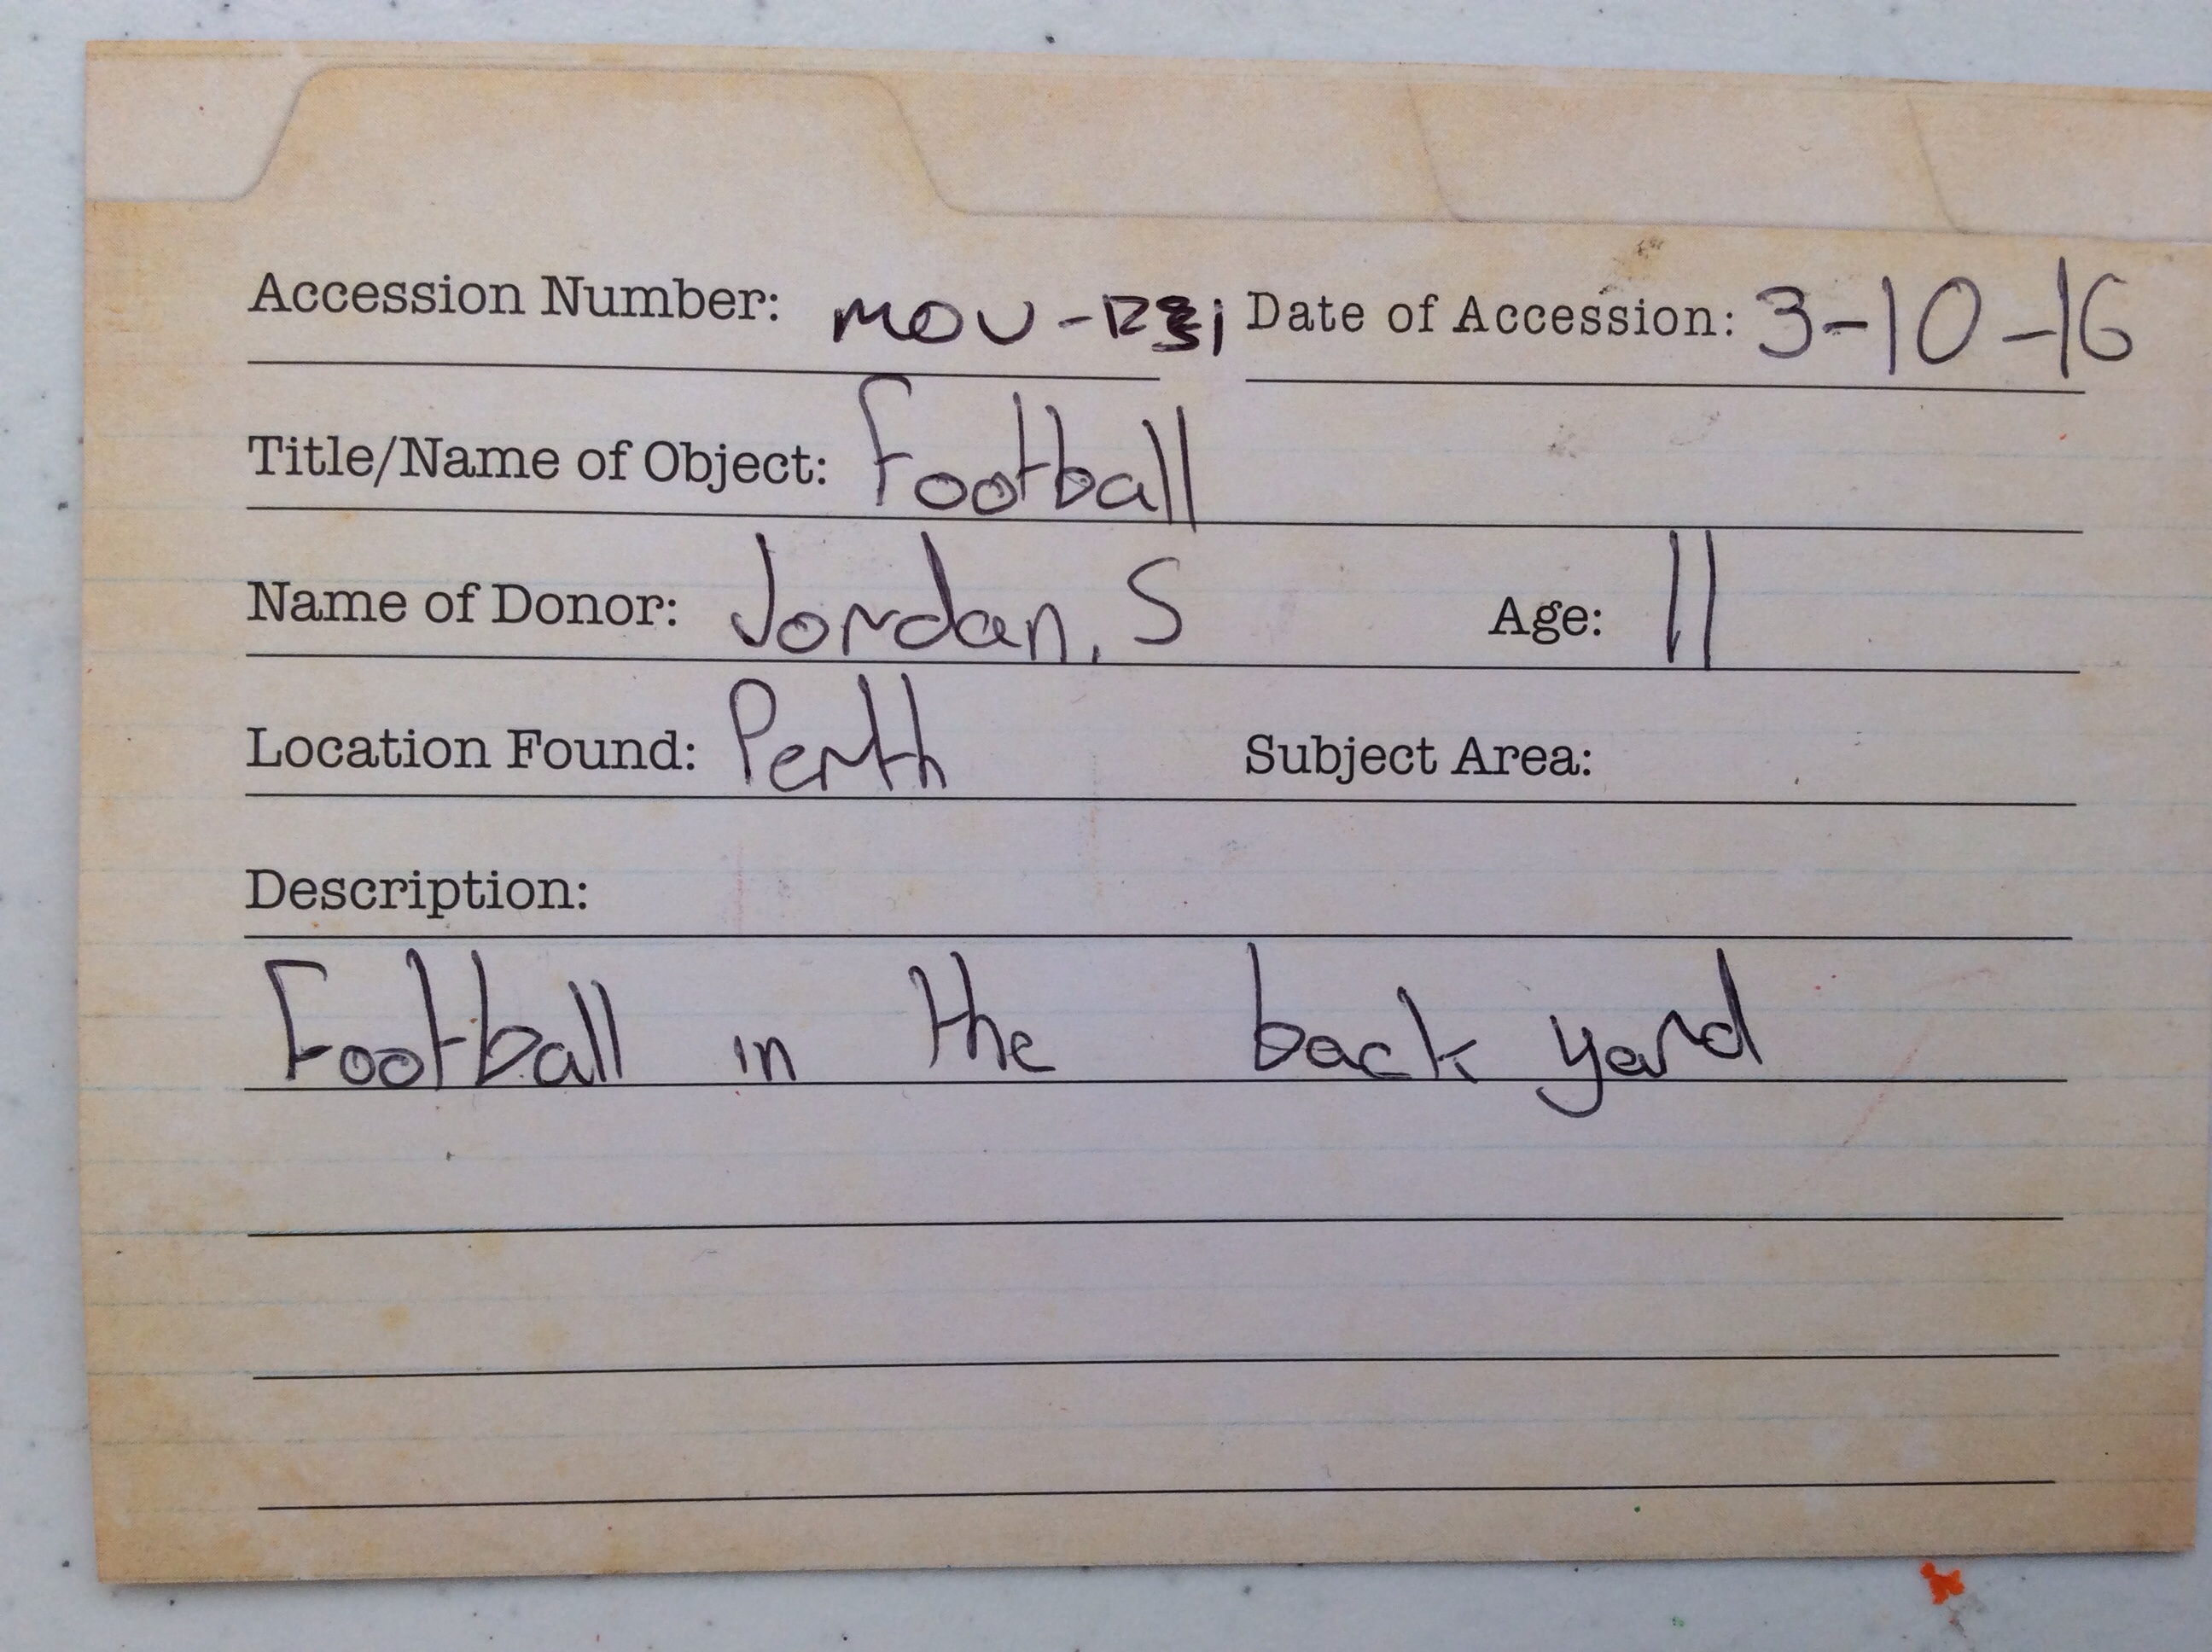 Accession Number: MOU- Date of Accession: 3-10-16
Title/Name of Object: Football
Name of Donor: Jordan, S Age: 11
Location Found: Perth Subject Area:
Description:
Football in the back yard